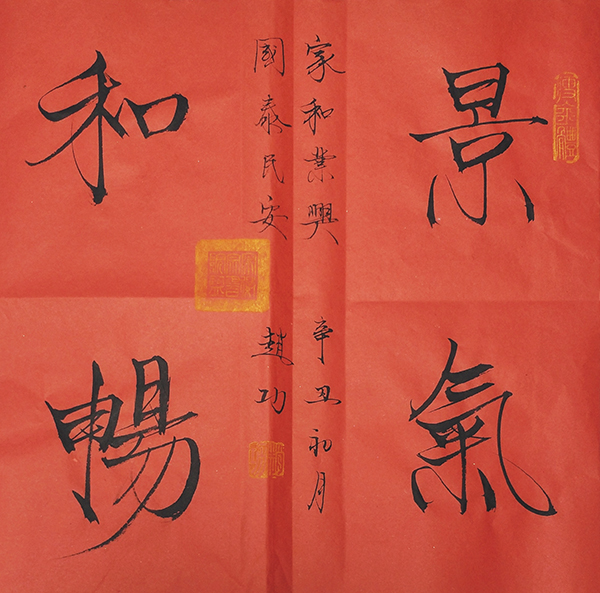 景氣
家和業興 辛丑初月
國泰民安 趙功
和暢